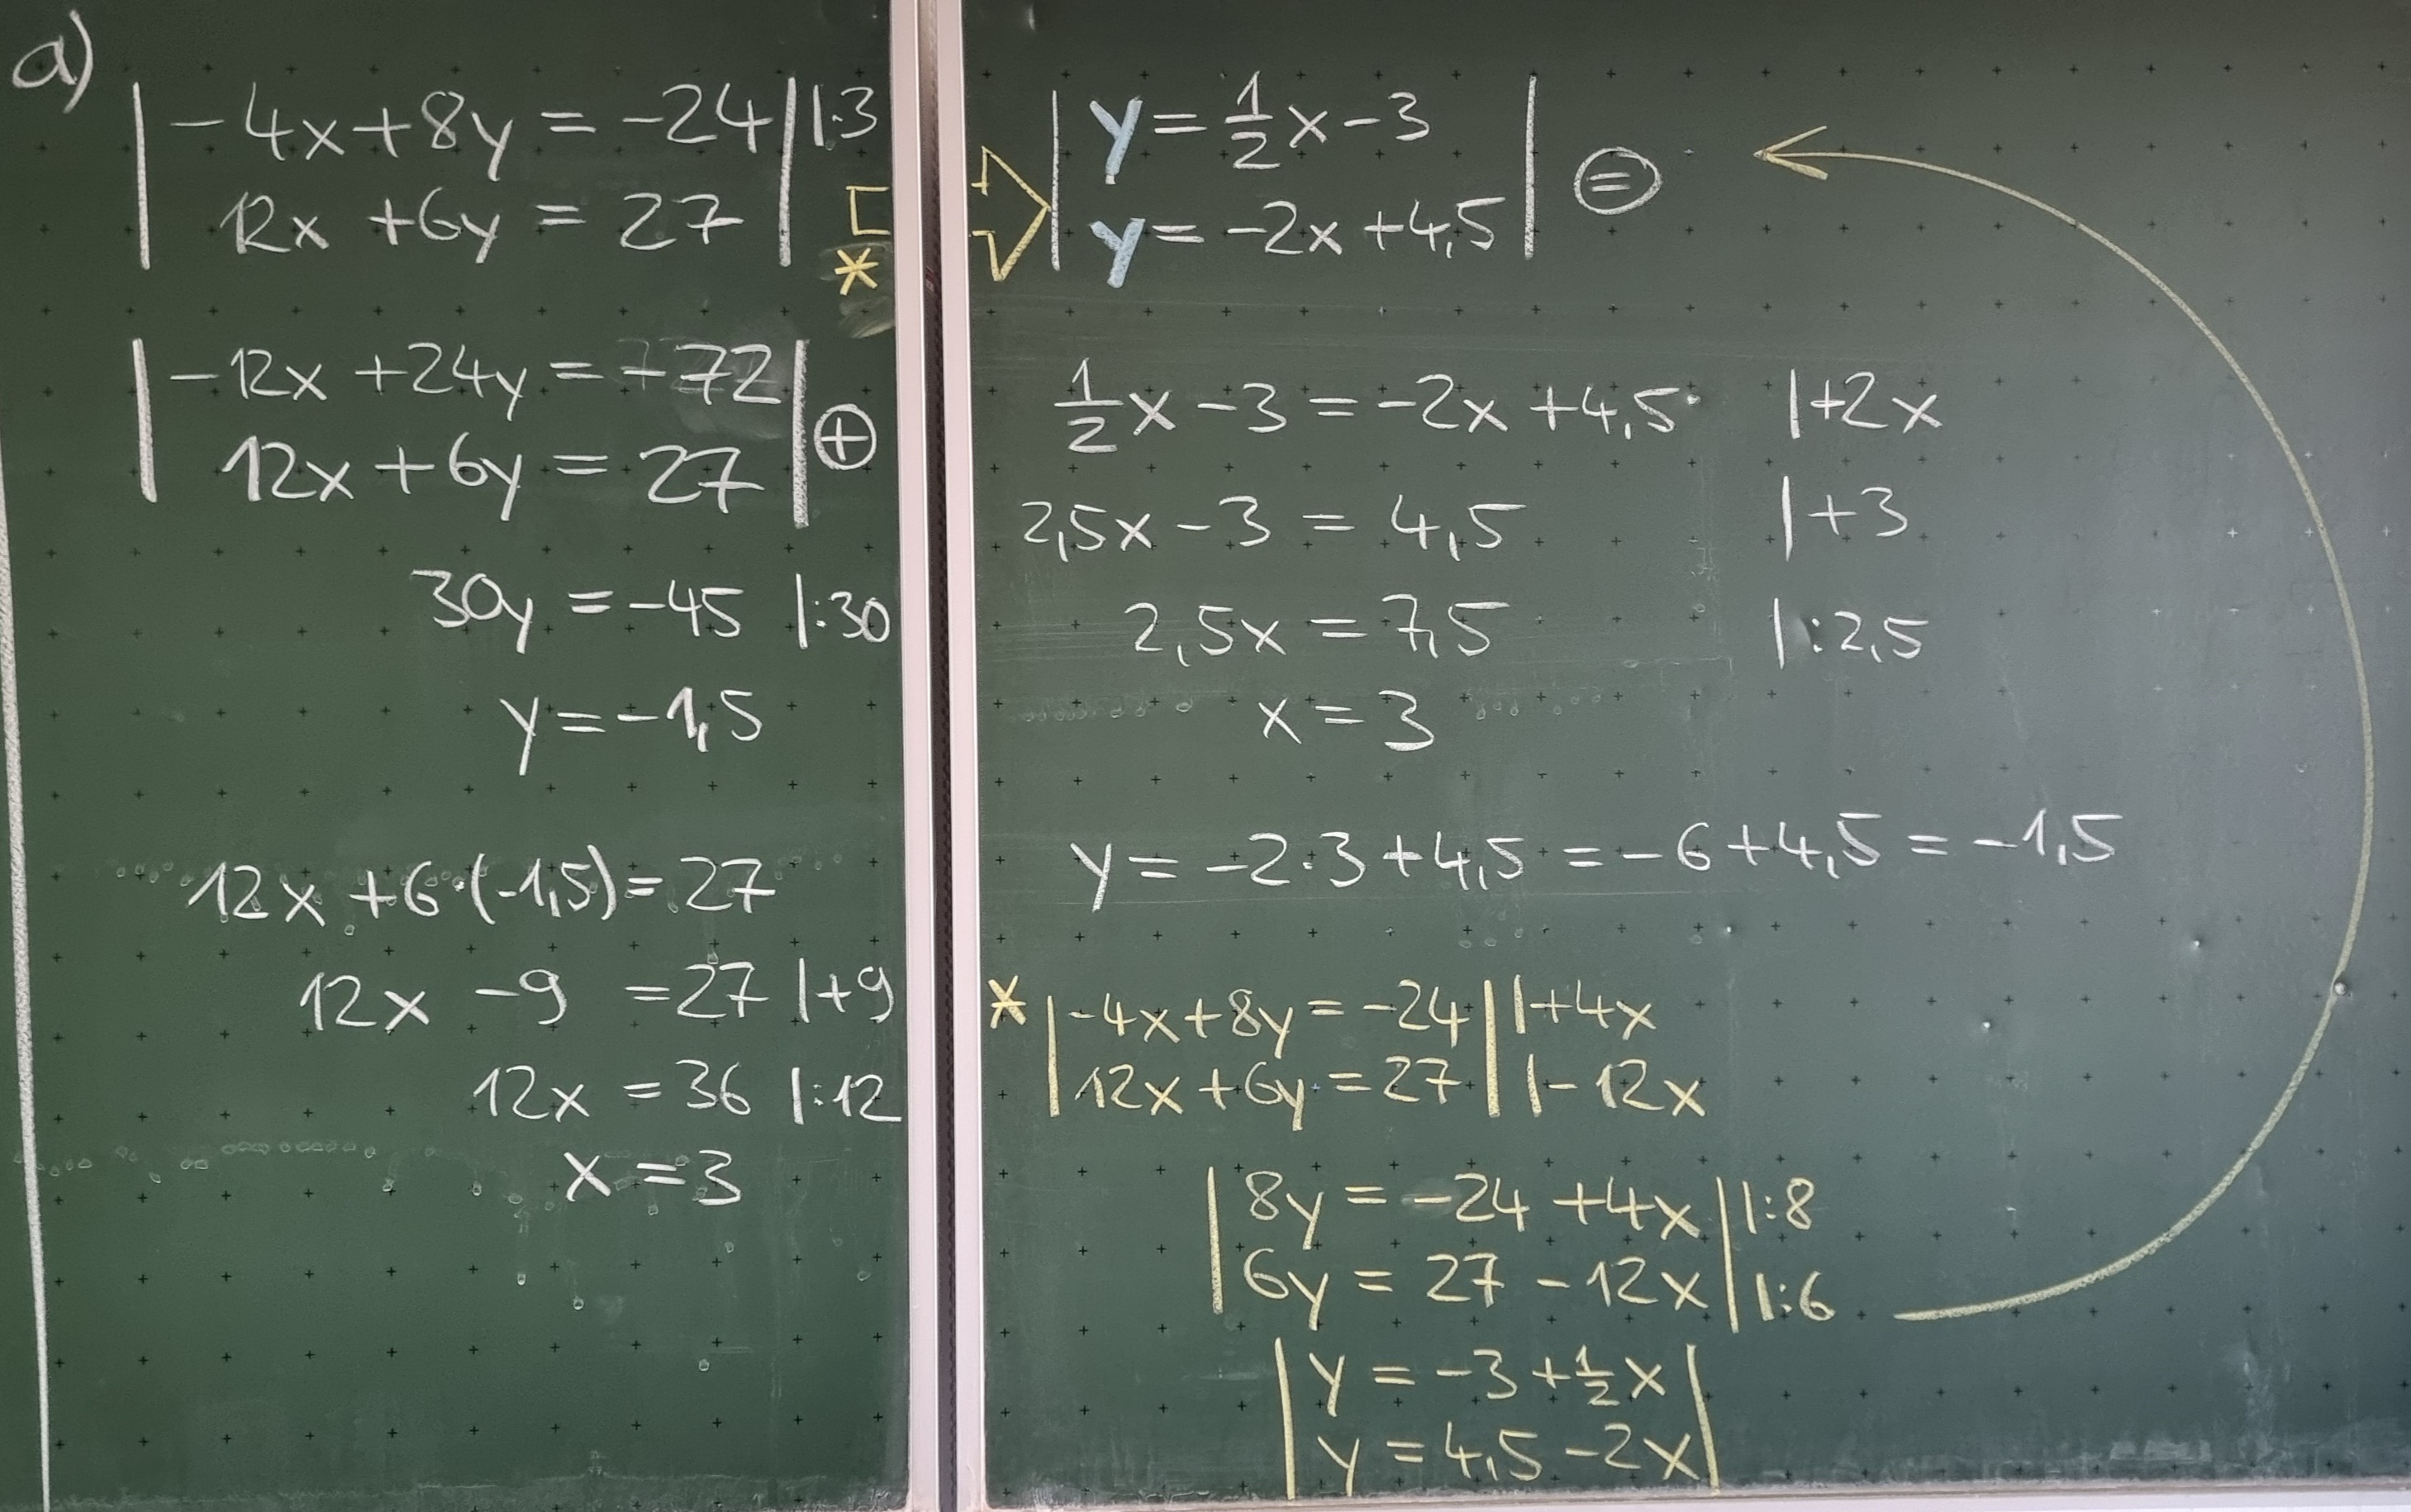 a)
| -4x + 8y = -24 | |·3
| 12x + 6y = 27 |
*
| -12x + 24y = -72 |
| 12x + 6y = 27 | ⊕
30y = -45 |:30
y = -1,5
12x + 6·(-1,5) = 27
12x - 9 = 27 |+9
12x = 36 |:12
x = 3
| y = 1/2 x - 3 |
| y = -2x + 4,5 | ⊜
1/2 x - 3 = -2x + 4,5 |+2x
2,5x - 3 = 4,5 |+3
2,5x = 7,5 |:2,5
x = 3
y = -2·3 + 4,5 = -6 + 4,5 = -1,5
* | -4x + 8y = -24 | |+4x
| 12x + 6y = 27 | |-12x
| 8y = -24 + 4x | |:8
| 6y = 27 - 12x | |:6
| y = -3 + 1/2 x |
| y = 4,5 - 2x |